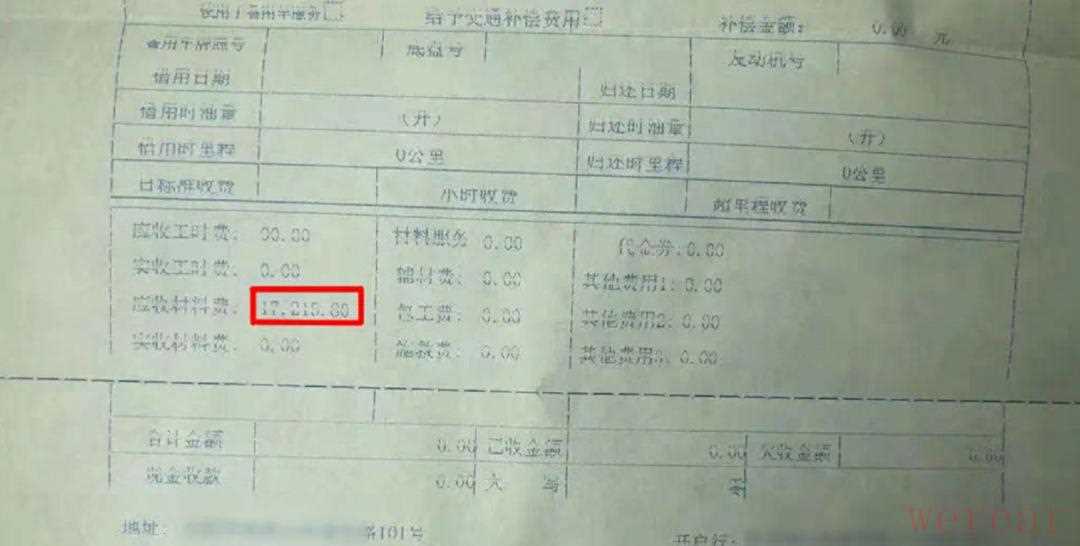 使用了备用车服务□ 给予交通补偿费用:□ 补偿金额: 0.00 元
备用车牌照号 底盘号 发动机号
借用日期 归还日期
借用时油量 (升) 归还时油量 (升)
借用时里程 0公里 归还时里程 0公里
日标准收费 小时收费 超里程收费
应收工时费: 材料服务 0.00 代金券:0.00
实收工时费: 0.00 辅材费: 0.00 其他费用1: 0.00
应收材料费: 包工费: 0.00 其他费用2: 0.00
实收材料费: 0.00 施救费: 0.00 其他费用3: 0.00
合计金额 0.00 已收金额 0.00 欠收金额 0.00
现金收款 0.00 大 写 零
地址: 路101号 开户行: